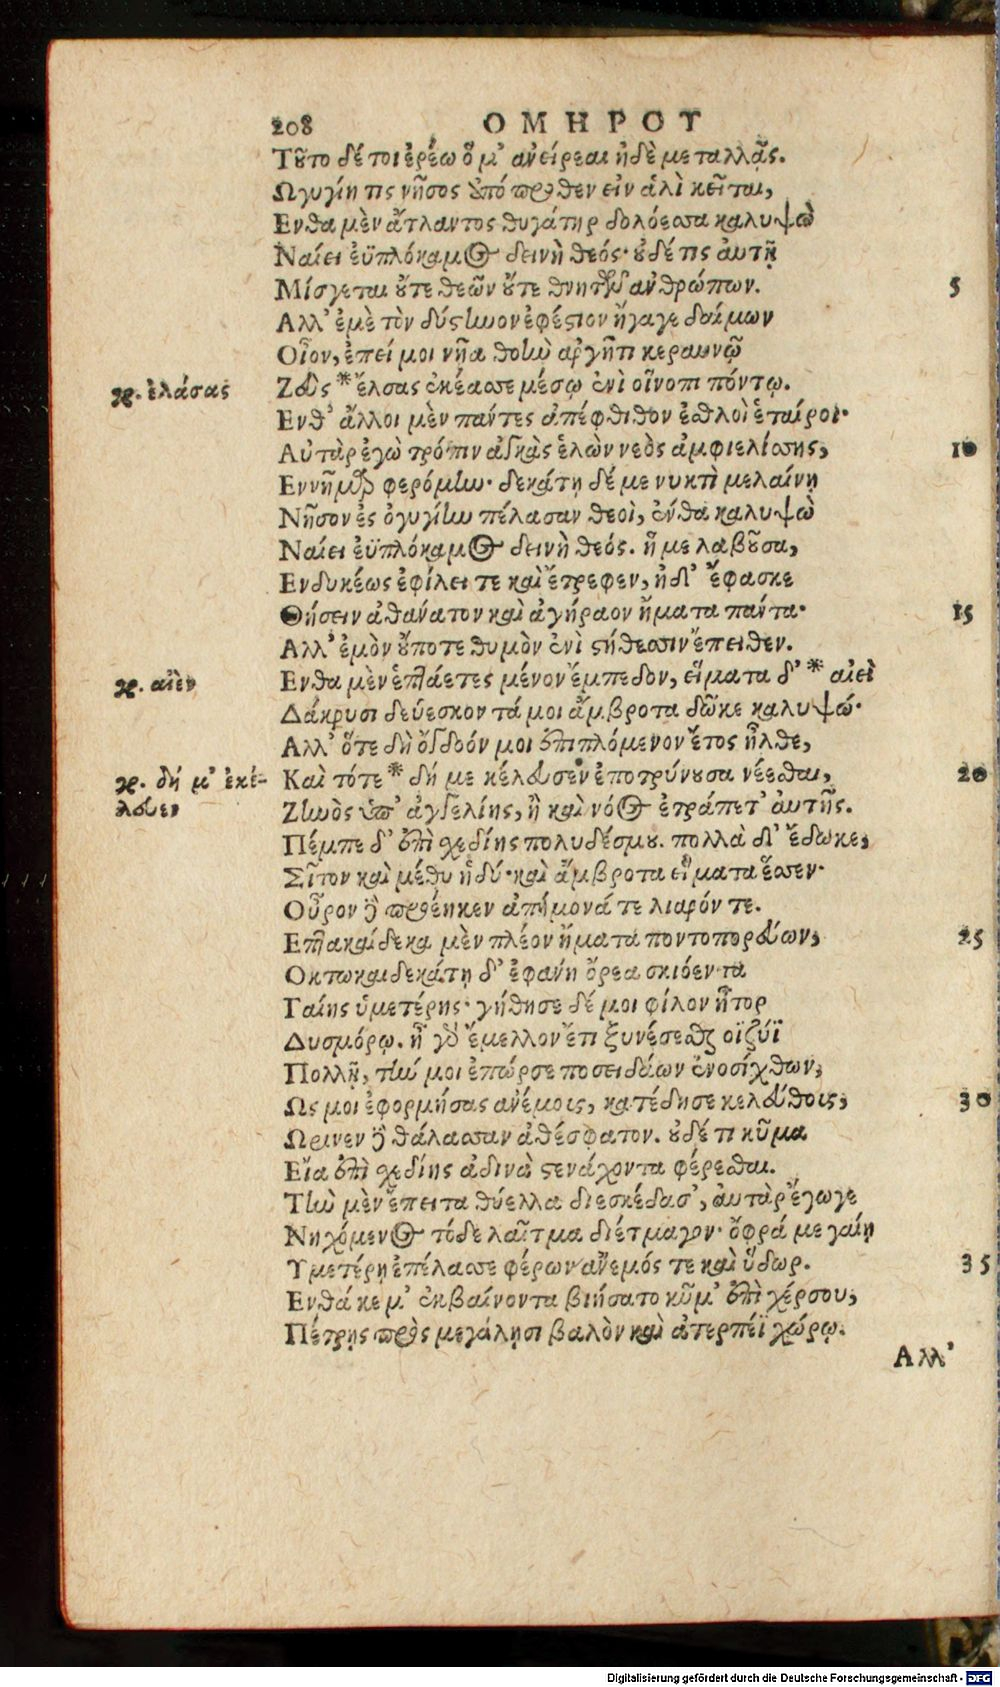 208 ΟΜΗΡΟΥ
Τοῦτο δέ τοι ἐρέω ὅ μ' ἀνείρεαι ἠδὲ μεταλλᾷς.
Ωγυγίη τις νῆσος ἀπόπροθεν εἰν ἁλὶ κεῖται,
Ενθα μὲν ἄτλαντος θυγάτηρ δολόεσσα καλυψὼ
Ναίει ἐϋπλόκαμος δεινὴ θεός· οὐδέ τις αὐτῇ
Μίσγεται οὔτε θεῶν οὔτε θνητῶν ἀνθρώπων. 5
Αλλ' ἐμὲ τὸν δύστηνον ἐφέστιον ἤγαγε δαίμων
Οἶον, ἐπεί μοι νῆα θοὴν ἀργῆτι κεραυνῷ
γρ. ἐλάσας Ζεὺς * ἔλσας ἐκέασσε μέσῳ ἐνὶ οἴνοπι πόντῳ.
Ενθ' ἄλλοι μὲν πάντες ἀπέφθιθον ἐσθλοὶ ἑταίροι·
Αὐτὰρ ἐγὼ τρόπιν ἀγκὰς ἑλὼν νεὸς ἀμφιελίσσης, 10
Εννῆμαρ φερόμην· δεκάτη δέ με νυκτὶ μελαίνῃ
Νῆσον ἐς ὀγυγίην πέλασαν θεοὶ, ἔνθα καλυψὼ
Ναίει ἐϋπλόκαμος δεινὴ θεός. ἥ με λαβοῦσα,
Ενδυκέως ἐφίλει τε καὶ ἔτρεφεν, ἠδ' ἔφασκε
Θήσειν ἀθάνατον καὶ ἀγήραον ἤματα πάντα· 15
Αλλ' ἐμὸν οὔποτε θυμὸν ἐνὶ στήθεσσιν ἔπειθεν.
γρ. αἰὲν Ενθα μὲν ἑπτάετες μένον ἔμπεδον, εἵματα δ' * αἰεὶ
Δάκρυσι δεύεσκον τά μοι ἄμβροτα δῶκε καλυψώ·
Αλλ' ὅτε δὴ ὄγδοόν μοι ἐπιπλόμενον ἔτος ἦλθε,
γρ. δή μ' ἐκέ- Καὶ τότε * δή με κέλευσεν ἐποτρύνουσα νέεσθαι, 20
λευεν Ζηνὸς ὑπ' ἀγγελίης, ἢ καὶ νόος ἐτράπετ' αὐτῆς.
Πέμπε δ' ἐπὶ σχεδίης πολυδέσμου. πολλὰ δ' ἔδωκε,
Σῖτον καὶ μέθυ ἡδύ· καὶ ἄμβροτα εἵματα ἕσσεν·
Οὖρον δὲ προέηκεν ἀπήμονά τε λιαρόν τε.
Επτακαίδεκα μὲν πλέον ἤματα ποντοπορεύων, 25
Οκτωκαιδεκάτῃ δ' ἐφάνη ὄρεα σκιόεντα
Γαίης ὑμετέρης· γήθησε δέ μοι φίλον ἦτορ
Δυσμόρῳ. ἦ γὰρ ἔμελλον ἔτι ξυνέσεσθαι οἰζύϊ
Πολλῇ, τήν μοι ἐπῶρσε ποσειδάων ἐνοσίχθων,
Ως μοι ἐφορμήσας ἀνέμοις, κατέδησε κελεύθοις, 30
Ωρινεν δὲ θάλασσαν ἀθέσφατον. οὐδέ τι κῦμα
Εἴα ἐπὶ σχεδίης ἀδινὰ στενάχοντα φέρεσθαι.
Τὴν μὲν ἔπειτα θύελλα διεσκέδασ', αὐτὰρ ἔγωγε
Νηχόμενος τόδε λαῖτμα διέτμαγον· ὄφρά με γαίῃ
Υμετέρῃ ἐπέλασσε φέρων ἄνεμός τε καὶ ὕδωρ. 35
Ενθά κε μ' ἐκβαίνοντα βιήσατο κῦμ' ἐπὶ χέρσου,
Πέτρῃς πρὸς μεγάλῃσι βαλὸν καὶ ἀτερπέϊ χώρῳ.
Αλλ'
Digitalisierung gefördert durch die Deutsche Forschungsgemeinschaft - DFG